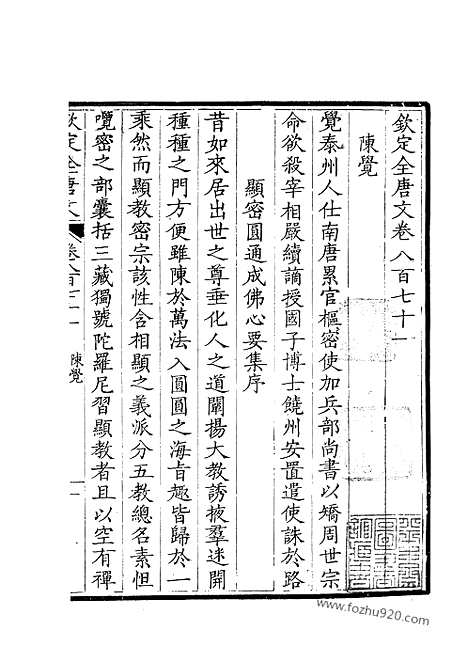 欽定全唐文卷八百七十一
陳覺
覺泰州人仕南唐累官樞密使加兵部尚書以矯周世宗
命欲殺宰相嚴續謫授國子博士饒州安置遣使誅於路
顯密圓通成佛心要集序
昔如來居出世之尊垂化人之道闡揚大教誘掖羣迷開
種種之門方便雖陳於萬法入圓圓之海旨趣皆歸於一
乘然而顯教密宗該性含相顯之義派分五教總名素怛
囕密之部囊括三藏獨號陀羅尼習顯教者且以空有禪
欽定全唐文
陳覺
一
www.fozhu920.com